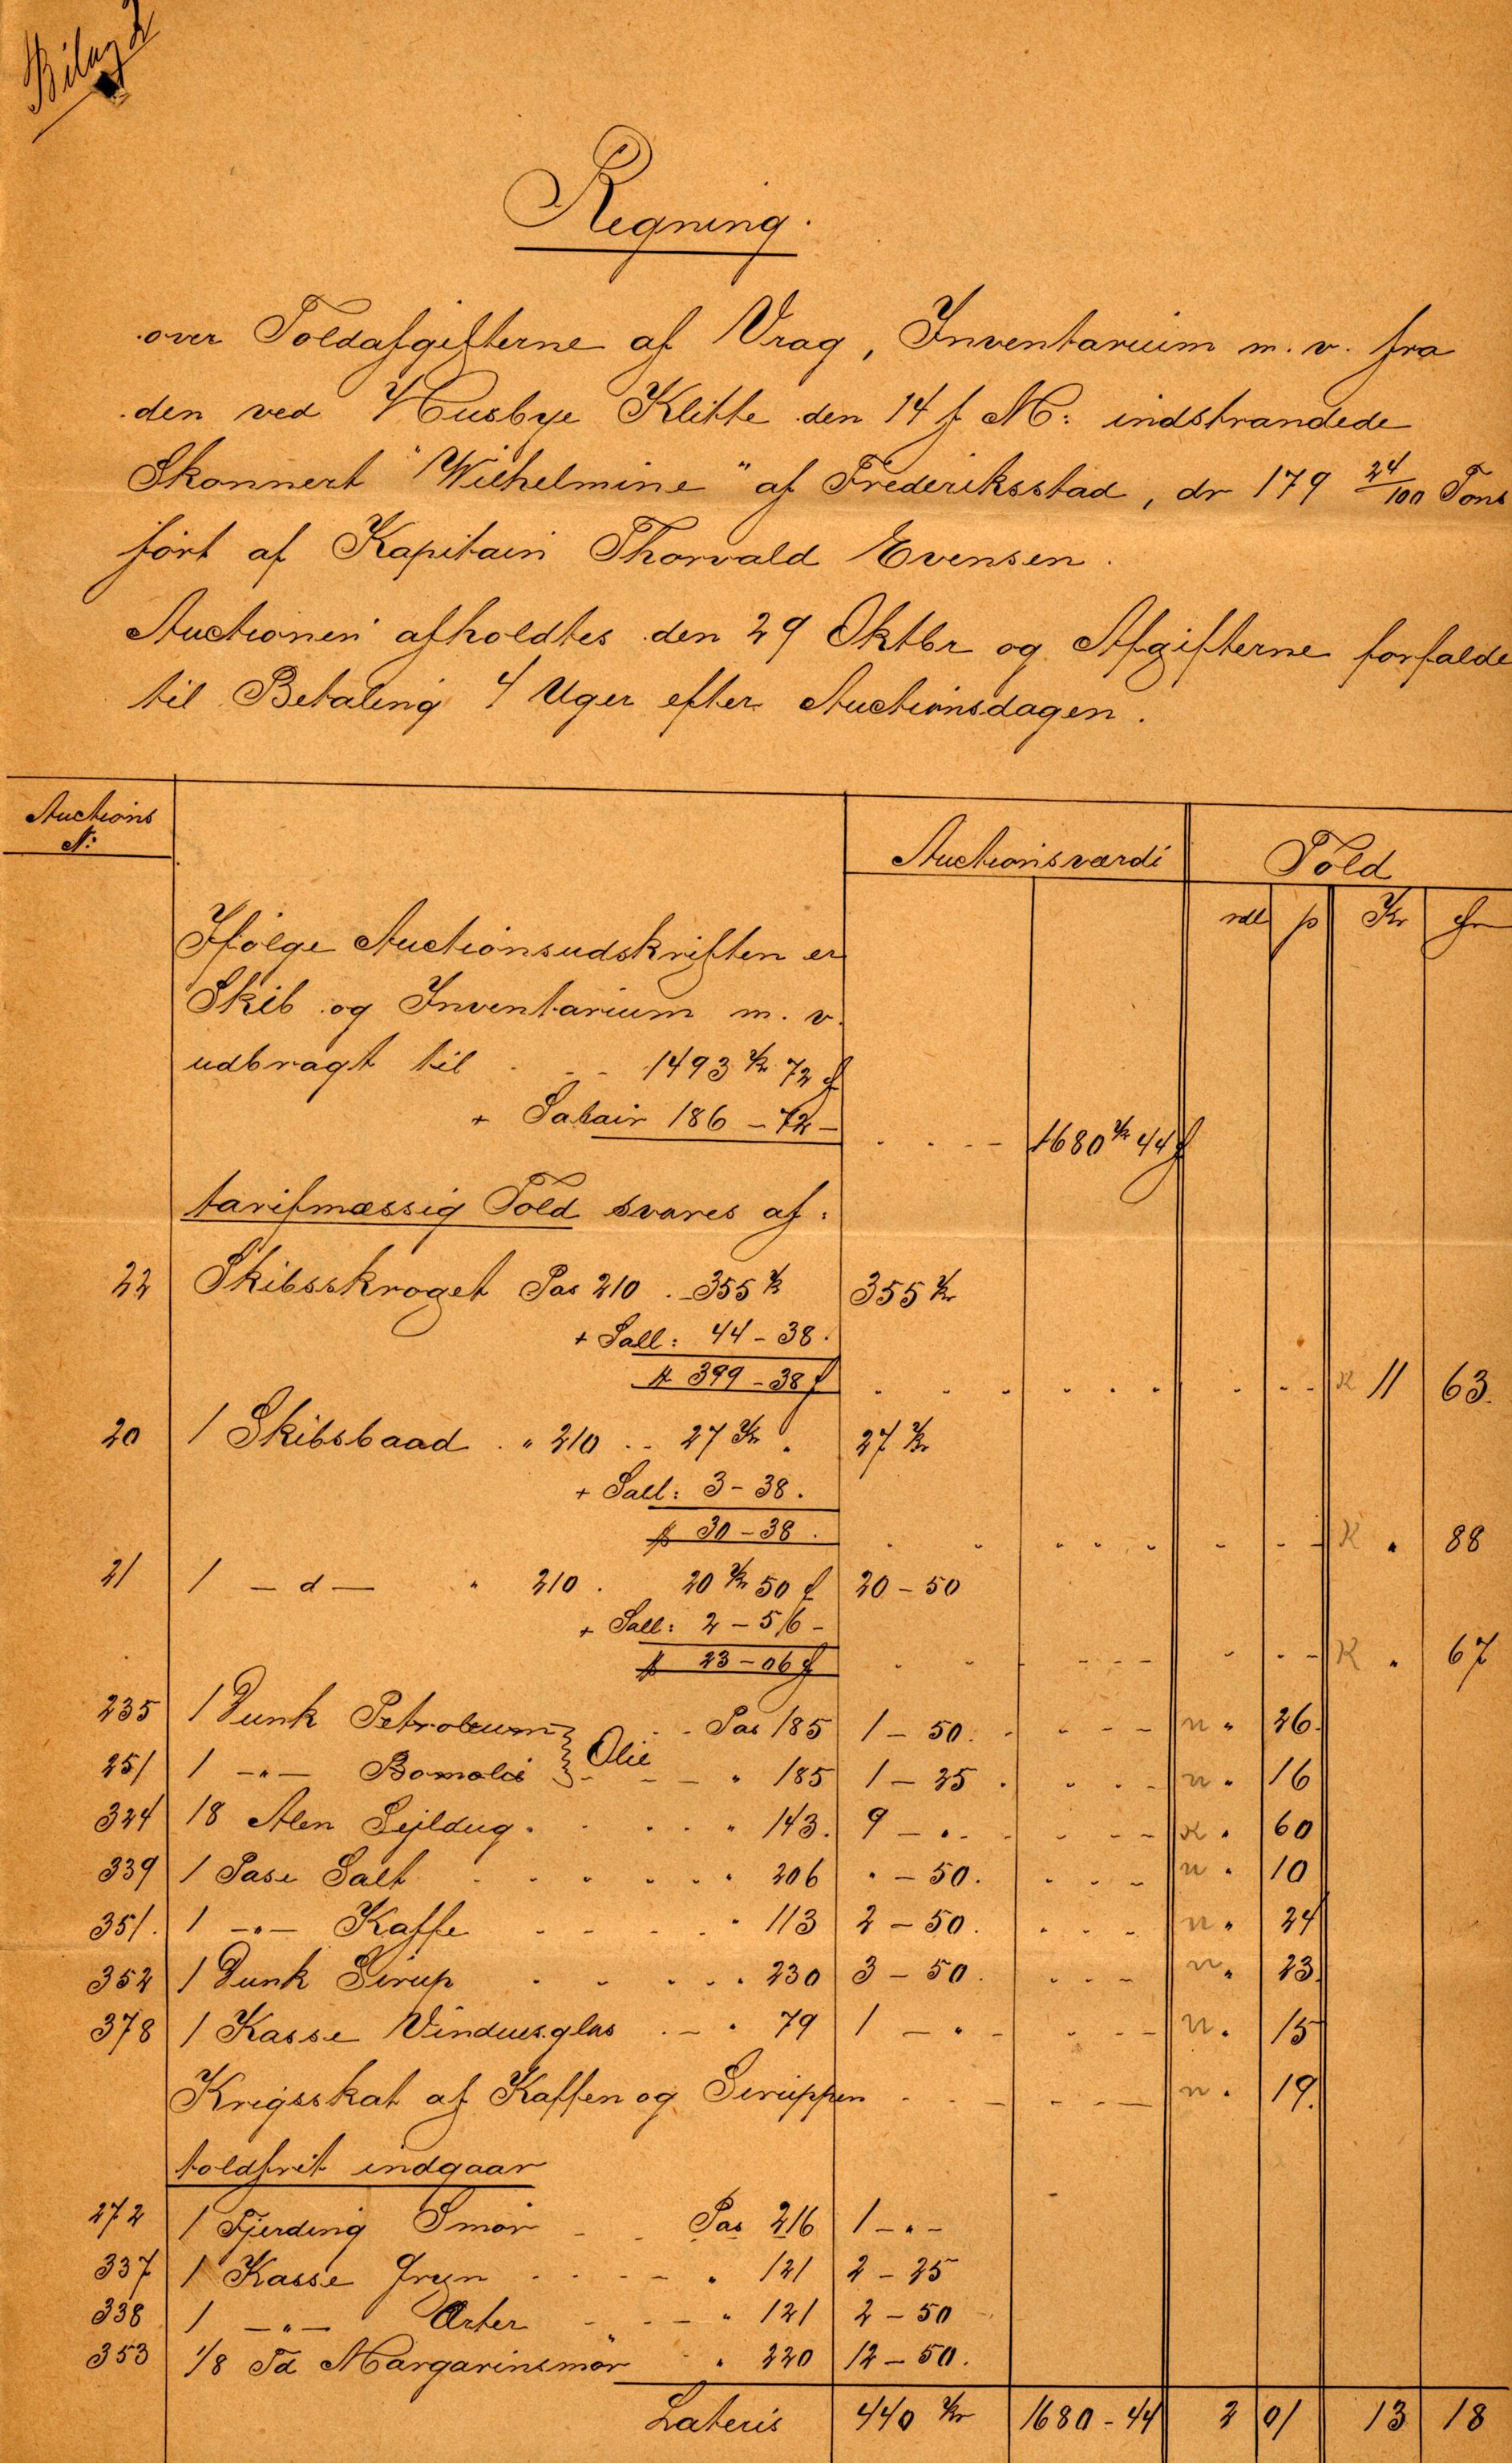 Bilag 2
Regning.
over Toldafgifterne af Vrag, Inventarium m. v. fra
den ved Husbye Klitte den 14 f. M: indstrandede
Skonnert "Wilhelmine" af Frederiksstad, dr 179 24/100 Tons
ført af Kapitain Thorvald Evensen.
Auctionen afholdtes den 29 Oktbr og Afgifterne forfalde
til Betaling 4 Uger efter Auctionsdagen.
Auctions
N:
Auctionsværdi Told
rdl ß Kr
Ifølge Auctionsudskriften er
Skib og Inventarium m. v.
udbragt til - - 1493 Kr 72 ø
+ Salair 186 - 72 - 1680 Kr 44 ø
tarifmæssig Told svares af:
22 Skibsskroget Pos 210 . 355 Kr 355 Kr
+ Sall: 44 - 38.
399 - 38 ø K 11 63.
20 1 Skibsbaad . " 210 .. 27 Kr " 27 Kr
+ Sall: 3 - 38.
30 - 38. K " 88
21 1 - d - " 210 . 20 Kr 50 ø 20 - 50
+ Sall: 2 - 56 -
23 - 06 ø K " 67
235 1 Dunk Petroleum } Olie - Pos 185 1 - 50. n " 26.
251 1 - " - Bomolie } " 185 1 - 25. n " 16
324 18 Alen Sejldug . " 143. 9 - " - " 60
339 1 Pose Salt " 206 " - 50. n " 10
351. 1 - " - Kaffe " 113 2 - 50. n " 24
352 1 Dunk Sirup " 230 3 - 50. n " 23.
378 1 Kasse Vinduesglas . - " 79 1 - " - n " 15
Krigsskat af Kaffen og Siruppen n " 19.
toldfrit indgaar
272 1 Fjerding Smør Pos 216 1 - " -
337 1 Kasse Gryn " 121 2 - 25
338 1 - " - Ærter " 121 2 - 50
353 1/8 Td Margarinsmør " 220 12 - 50.
Lateris 440 Kr 1680 - 44 2 01 13 18